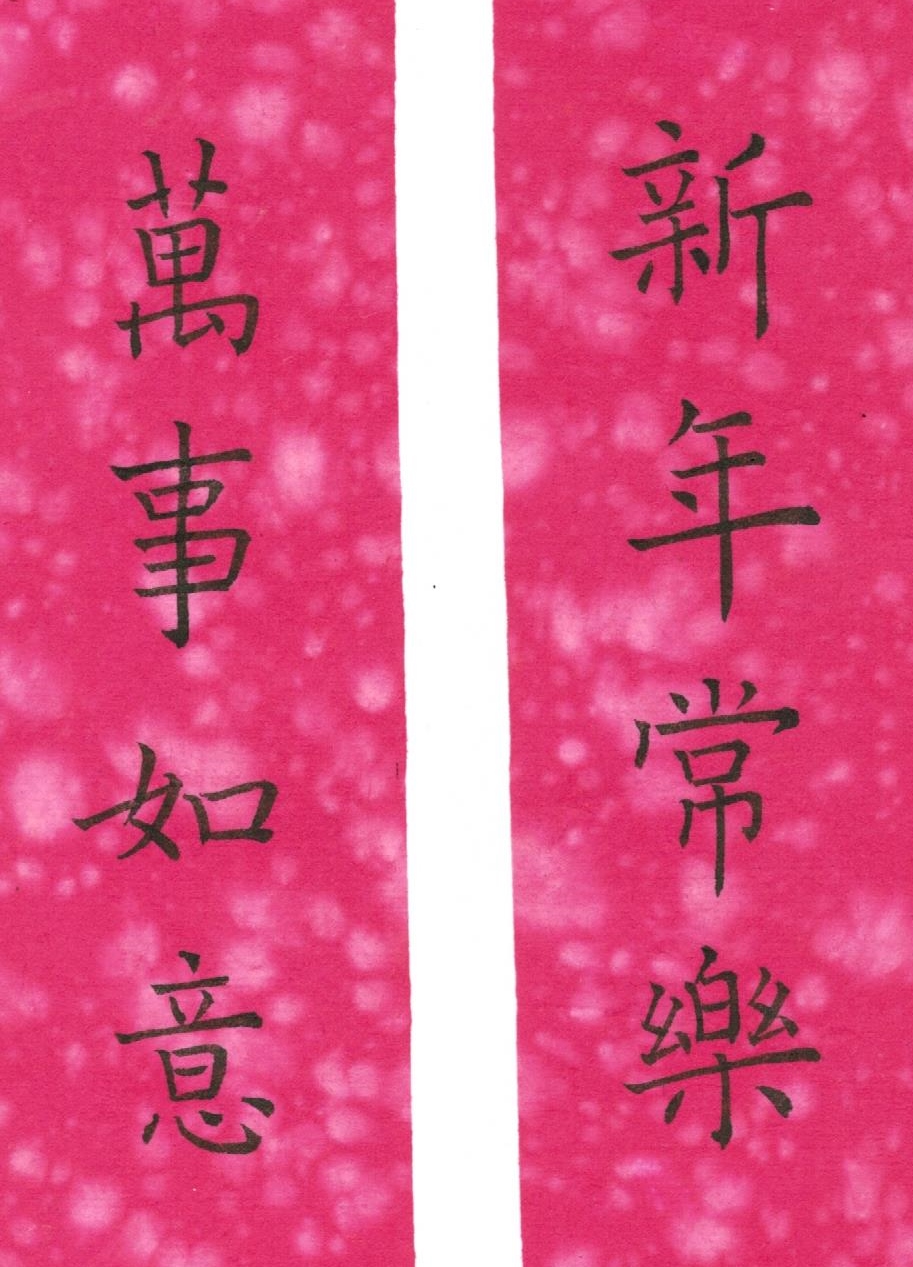 新年常樂
萬事如意